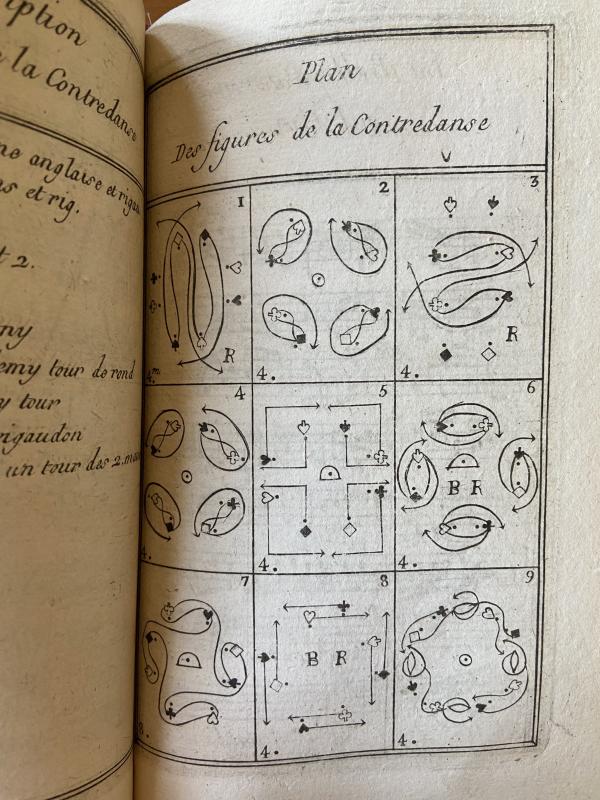 iption
la Contredanse
ne anglaise et rigau
ns et rig.
t 2.
ny
emy tour de rond
y tour
rigaudon
un tour des 2. mains
Plan
Des figures de la Contredanse
1
R
4.m
2
4.
3
R
4.
4
4.
5
4.
6
B R
4.
7
8.
8
B R
4.
9
4.